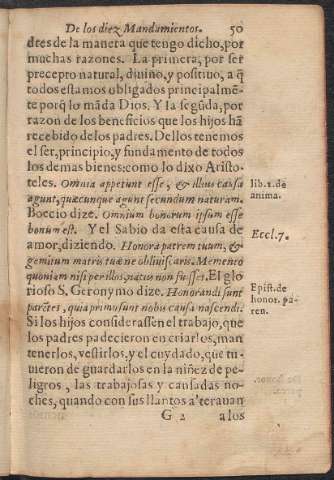 De los diez Mandamientos. 50
dres de la manera que tengo dicho, por
muchas razones. La primera, por ser
precepto natural, diuino, y positiuo, a q̃
todos estamos obligados principalmẽ-
te porq̃ lo mãda Dios. Y la segũda, por
razon de los beneficios que los hijos hã
recebido de los padres. Dellos tenemos
el ser, principio, y fundamento de todos
los demas bienes: como lo dixo Aristo-
teles. Omnia appetunt esse, & illius causa
agunt, quæcunque agunt secundum naturam.
Boecio dize. Omnium bonorum ipsum esse
bonum est. Y el Sabio da esta causa de
amor, diziendo. Honora patrem tuum, &
gemitum matris tuæ ne obliuiscaris. Memento
quoniam nisi per illos, natus non fuisset. El glo
rioso S. Geronymo dize. Honorandi sunt
parẽtes, quia primo sunt nobis causa nascendi.
Si los hijos considerassẽn el trabajo, que
los padres padecieron en criarlos, man
tenerlos, vestirlos, y el cuydado, que tu-
uieron de guardarlos en la niñez de pe-
ligros, las trabajosas y cansadas no-
ches, quando con sus llantos a'terauan
G 2 a los
lib. 2. de
anima.
Eccl. 7.
Epist. de
honor. pa-
ren.